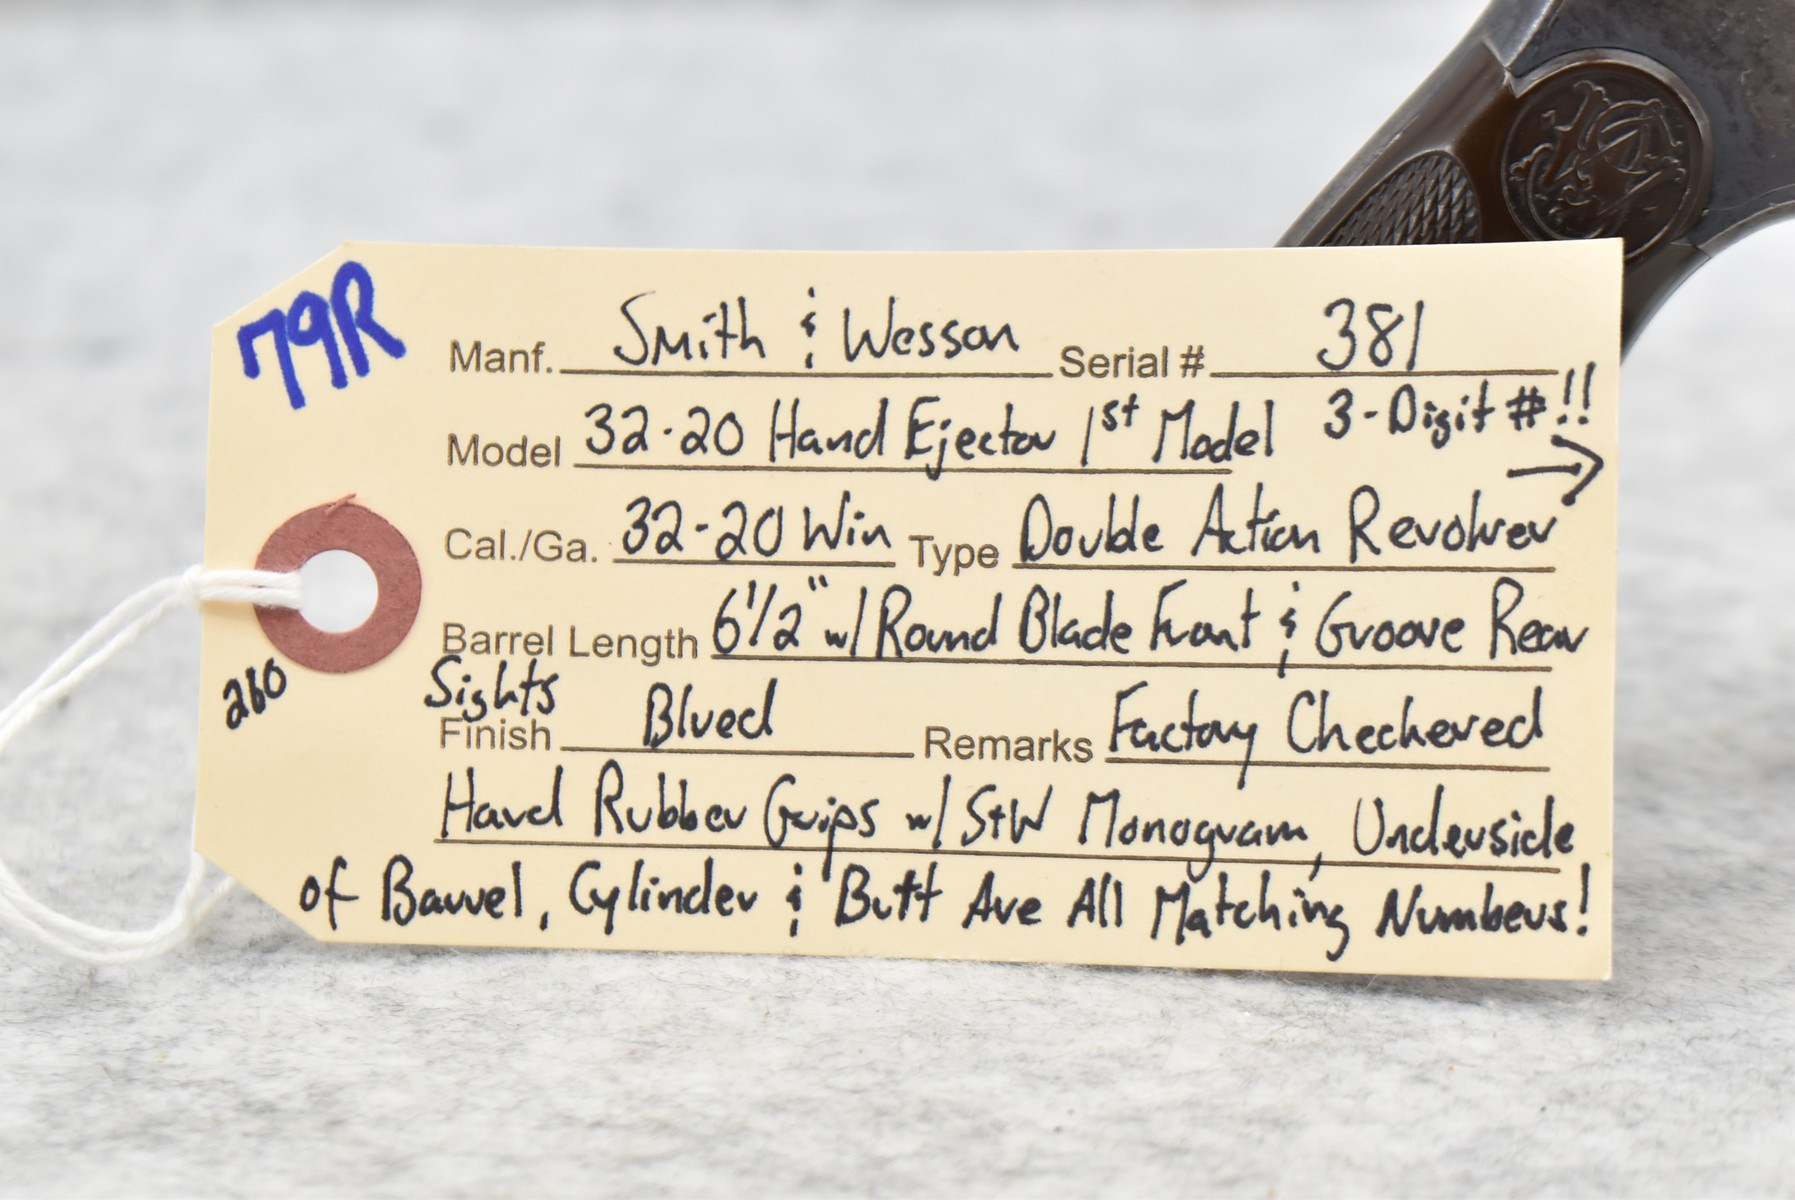 79R
Manf. Smith & Wesson Serial # 381
3-Digit #!!
Model 32-20 Hand Ejector 1st Model
Cal./Ga. 32-20 Win Type Double Action Revolver
Barrel Length 6 1/2" w/ Round Blade Front & Groove Rear
Sights
260
Finish Blued Remarks Factory Checkered
Hard Rubber Grips w/ S+W Monogram, Underside
of Barrel, Cylinder & Butt Are All Matching Numbers!